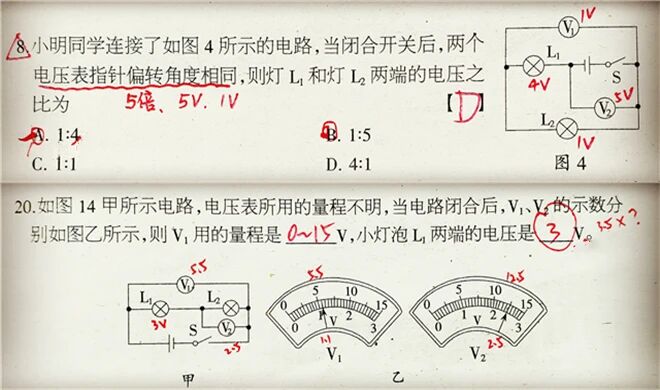 8.小明同学连接了如图 4 所示的电路,当闭合开关后,两个
电压表指针偏转角度相同,则灯 L₁ 和灯 L₂ 两端的电压之
比为 5倍、5V. 1V 【D】
A. 1∶4 B. 1∶5
C. 1∶1 D. 4∶1
1V
V₁
L₁
S
4V
V₂ 5V
L₂
1V
图 4
20.如图 14 甲所示电路,电压表所用的量程不明,当电路闭合后,V₁、V₂ 的示数分
别如图乙所示,则 V₁ 用的量程是 0~15 V,小灯泡 L₁ 两端的电压是 3 V。 3.5×?
5.5
V₁
L₁ L₂
3V S V₂
2.5
甲
5.5
0 5 10 15
0 1 2 3
V
1.1
V₁
12.5
0 5 10 15
0 1 2 3
V
2.5
V₂
乙